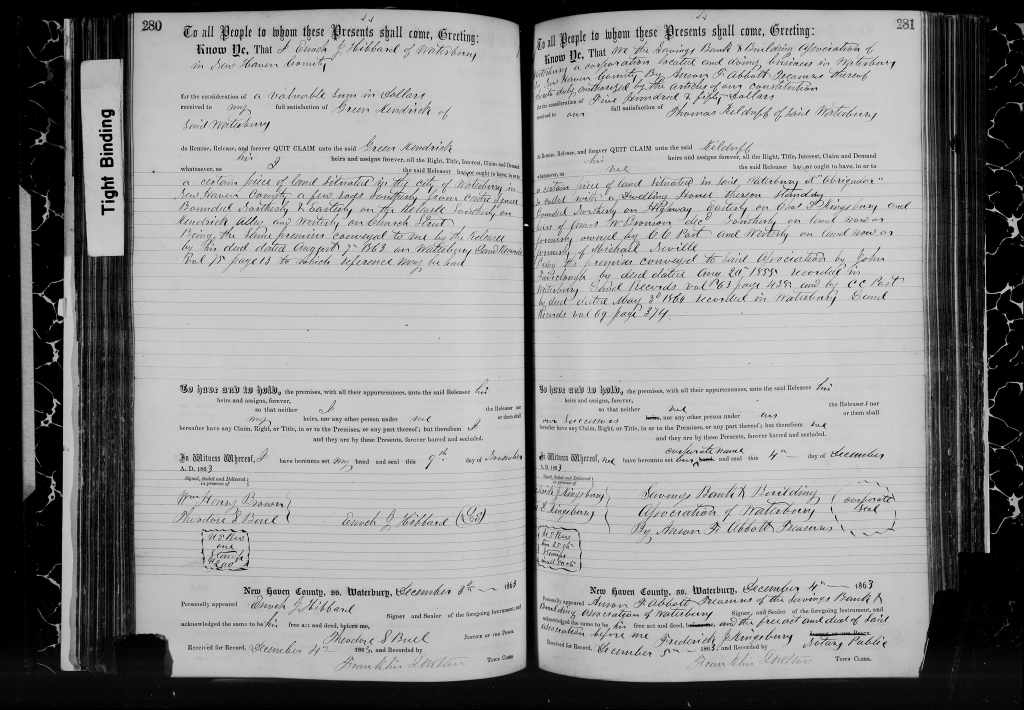 280
To all People to whom these Presents shall come, Greeting:
Know Ye, That I Enoch J Hibbard of Waterbury
in New Haven County
for the consideration of a valuable sum in dollars
received to my full satisfaction of Green Kendrick of
said Waterbury
do Remise, Release, and forever QUIT CLAIM unto the said Green Kendrick
his heirs and assigns forever, all the Right, Title, Interest, Claim and Demand
whatsoever, as I the said Releasor have or ought to have, in or to
a certain piece of land situated in the city of Waterbury in
New Haven County a few rods Southerly from Centre Square
Bounded Northerly & Easterly on the Releasee Southerly on
Kendrick Alley and Westerly on Church Street
Being the same premises conveyed to me by the Releasee
by his deed dated August 7th 1863 on Waterbury Land Records
Vol 75 page 13 to which reference may be had
To have and to hold, the premises, with all their appurtenances, unto the said Releasee his
heirs and assigns, forever,
so that neither I the Releasor nor
my heirs, nor any other person under me or them shall
hereafter have any Claim, Right, or Title, in or to the Premises, or any part thereof; but therefrom I
and they are by these Presents, forever barred and secluded.
In Witness Whereof, I have hereunto set my hand and seal this 9th day of November
A. D. 1863
Signed, Sealed and Delivered
in presence of
Wm Henry Brown
Theodore S Buel
Enoch J Hibbard (LS)
U S Rev
one
Stamp
New Haven County, ss. Waterbury, December 1863
Personally appeared Enoch J Hibbard
Signer and Sealer of the foregoing Instrument, and
acknowledged the same to be his free act and deed, before me,
Theodore S Buel Justice of the Peace
Received for Record, December 4th 1863, and Recorded by
Town Clerk.
281
To all People to whom these Presents shall come, Greeting:
Know Ye, That We the Savings Bank & Building Association of
Waterbury a corporation located and doing business in Waterbury
in New Haven County By Anson F. Abbott Treasurer thereof
duly authorized by the articles of our constitution
for the consideration of Five hundred & fifty dollars
received to our full satisfaction of Thomas Kilduff of said Waterbury
do Remise, Release, and forever QUIT CLAIM unto the said Kilduff
his heirs and assigns forever, all the Right, Title, Interest, Claim and Demand
whatsoever, as we the said Releasor have or ought to have, in or to
a certain piece of land situated in said Waterbury at "Abrigador"
so called with a Dwelling House thereon standing
Bounded Northerly on Highway Easterly on Chas D Kingsbury and
heirs of James M Bronson decd Southerly on land now or
formerly owned by C C Post and Westerly on land now or
formerly of Neville
Being the premises conveyed to said Association by John
Fairclough by deed dated Aug 20th 1855 recorded in
Waterbury Land Records vol 63 page 438 and by C C Post
by deed dated May 3d 1860 recorded in Waterbury Land
Records vol 69 page 374
To have and to hold, the premises, with all their appurtenances, unto the said Releasee his
heirs and assigns, forever,
so that neither we the Releasors nor
our Successors heirs, nor any other person under us or them shall
hereafter have any Claim, Right, or Title, in or to the Premises, or any part thereof; but therefrom we
and they are by these Presents, forever barred and secluded.
In Witness Whereof, we have hereunto set our corporate name hand and seal this 4th day of December
A. D. 1863
Signed, Sealed and Delivered
in presence of
Kingsbury
Kingsbury
Savings Bank & Building
Association of Waterbury
By Anson F Abbott Treasurer
corporate
Seal
U S Rev
Stamps
New Haven County, ss. Waterbury, December 4th 1863
Personally appeared Anson F. Abbott Treasurer of the Savings Bank &
Building Association of Waterbury Signer and Sealer of the foregoing Instrument, and
acknowledged the same to be his free act and deed, before me, and the free act and deed of said
Association before me Frederick J Kingsbury Notary Public
Received for Record, December 5th 1863, and Recorded by
Town Clerk.
Tight Binding